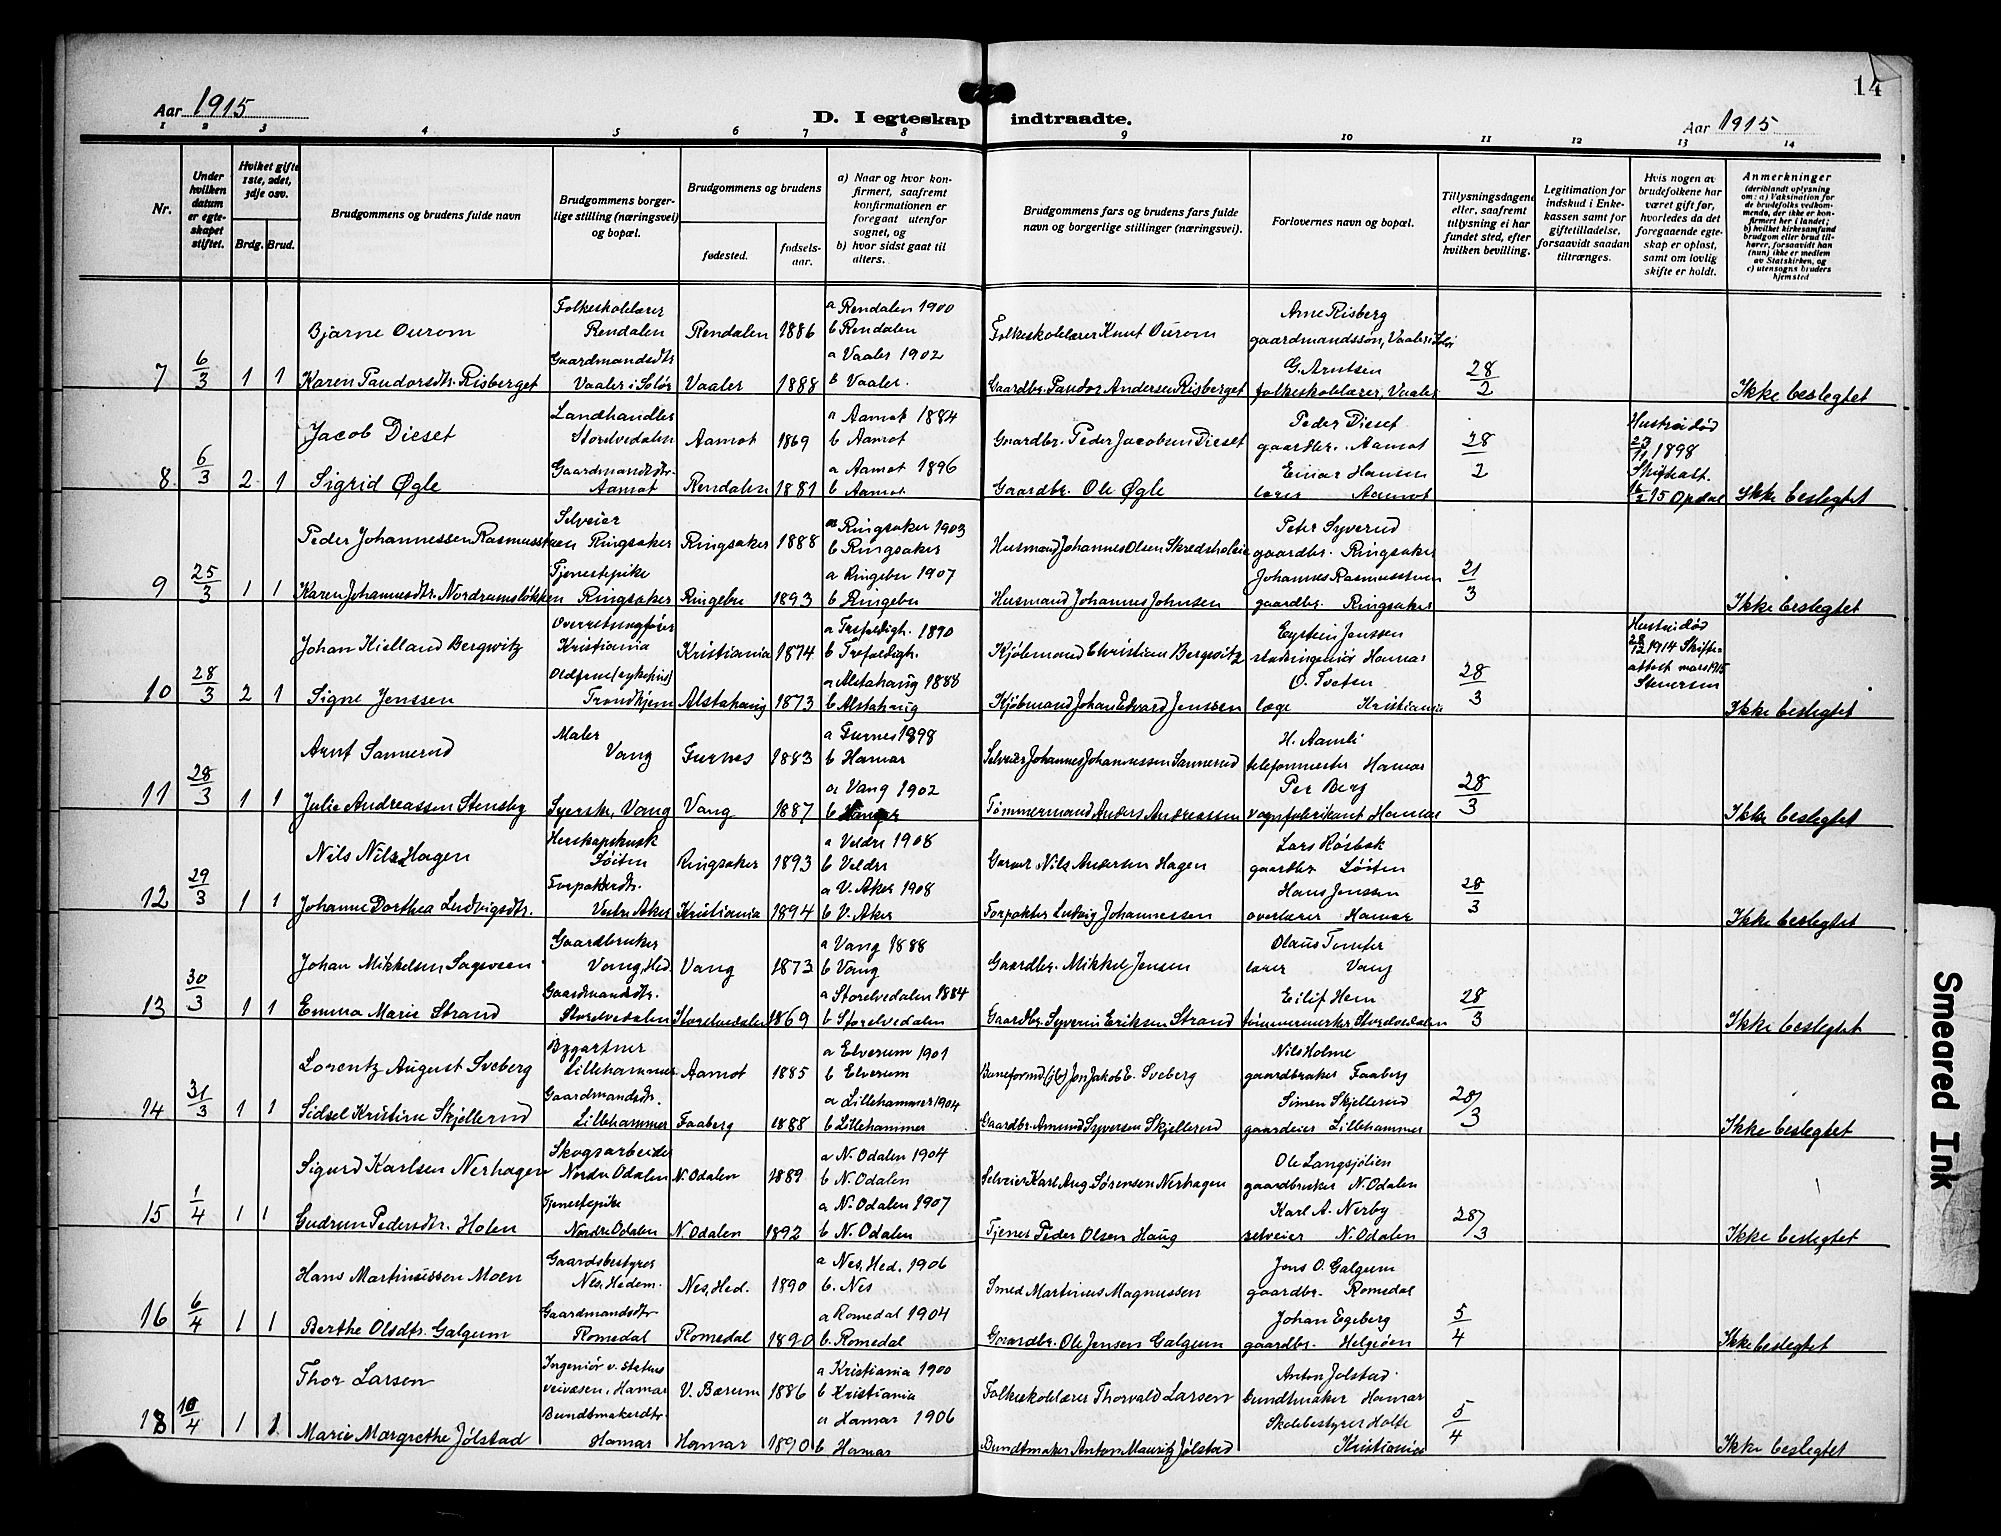 14
Aar 1915
D. I egteskap indtraadte.
Aar 1915
1 2 3 4 5 6 7 8 9 10 11 12 13 14
Nr.
Under hvilken datum er egteskapet stiftet.
Hvilket gifte 1ste, 2det, 3dje osv.
Brdg. Brud.
Brudgommens og brudens fulde navn
Brudgommens borgerlige stilling (næringsvei) og bopæl.
Brudgommens og brudens
fødested.
fødselsaar.
a) Naar og hvor konfirmert, saafremt konfirmationen er foregaat utenfor sognet, og
b) hvor sidst gaat til alters.
Brudgommens fars og brudens fars fulde navn og borgerlige stillinger (næringsvei).
Forlovernes navn og bopæl.
Tillysningsdagene eller, saafremt tillysning ei har fundet sted, efter hvilken bevilling.
Legitimation for indskud i Enkekassen samt for giftetilladelse, forsaavidt saadan tiltrænges.
Hvis nogen av brudefolkene har været gift før, hvorledes da det foregaaende egteskap er opløst, samt om lovlig skifte er holdt.
Anmerkninger
(deriblandt oplysning om: a) Vaksination for de brudefolks vedkommende, der ikke er konfirmert her i landet; b) hvilket kirkesamfund brudgom eller brud tilhører, forsaavidt han (hun) ikke er medlem av Statskirken, og c) utensogns bruders hjemsted
7 6/3 1 1
Bjarne Ourom Folkeskolelærer Rendalen Rendalen 1886 a Rendalen 1900 b Rendalen Folkeskolelærer Knut Ourom Arne Risberg gaardmandssøn, Vaaler i Solør
Karen Pandorsdtr. Risberget Gaardmandsdtr Vaaler i Solør Vaaler 1888 a Vaaler 1902 b Vaaler. Gaardbr. Pandor Andersen Risberget G. Arntsen folkeskolelærer, Vaaler 28/2 Ikke beslegtet
8 6/3 2 1
Jacob Dieset Landhandler Storelvedalen Aamot 1869 a Aamot 1884 b Aamot Gaardbr. Peder Jacobsen Dieset Peder Dieset gaardbr. Aamot
Sigrid Øgle Gaardmandsdtr. Aamot Rendalen 1881 a Aamot 1896 b Aamot Gaardbr. Ole Øgle Einar Hansen lærer Aamot 28/2 Hustru død 23/11 1898 Skifteatt. 15 Opdal Ikke beslegtet
9 25/3 1 1
Peder Johannessen Rasmusstuen Selveier Ringsaker Ringsaker 1888 a Ringsaker 1903 b Ringsaker Husmand Johannes Olsen Skredsholen Peter Syverud gaardbr. Ringsaker
Karen Johannesdtr. Nordrumsløkken Tjenestepike Ringsaker Ringebu 1893 a Ringebu 1907 b Ringebu Husmand Johannes Johnsen Johannes Rasmusstuen gaardbr. Ringsaker 21/3 Ikke beslegtet
10 28/3 2 1
Johan Kielland Bergwitz Overretssagfører Kristiania Kristiania 1874 a Trefoldigh. 1890 b Trefoldigh. Kjøbmand Christian Bergwitz Eystein Jenssen stadsingeniør Hamar
Signe Jenssen Oldfrue (sykehus) Trondhjem Alstahaug 1873 a Alstahaug 1888 b Alstahaug Kjøbmand Johan Edvard Jenssen O. Tveten læge Kristiania 28/3 Hustru død 28/12 1914 Skifteattest mars 1915 Stenersen Ikke beslegtet
11 28/3 1 1
Arnt Sannerud Maler Vang Furnes 1883 a Furnes 1898 b Hamar Selveier Johannes Johannessen Sannerud H. Aamli telefonmester Hamar
Julie Andreassen Stensby Syerske, Vang Vang 1887 a Vang 1902 b Hamar Tømmermand Anders Andreassen Per Berg vognfabrikant Hamar 28/3 Ikke beslegtet
12 29/3 1 1
Nils Nilsen Hagen Herskapskusk Løiten Ringsaker 1893 a Veldre 1908 b Veldre Garver Nils Andersen Hagen Lars Røsbak gaardbr Løiten
Johanne Dorthea Ludvigsdtr. Forpakterdtr. Vestre Aker Kristiania 1894 a V. Aker 1908 b V. Aker Forpakter Ludvig Johannessen Hans Jenssen overlærer Hamar 28/3 Ikke beslegtet
13 30/3 1 1
Johan Mikkelsen Sagveen Gaardbruker Vang, Hed. Vang 1873 a Vang 1888 b Vang Gaardbr. Mikkel Jensen Olaus Tomter lærer Vang
Emma Marie Strand Gaardmandsdtr. Storelvedalen Storelvedalen 1869 a Storelvedalen 1884 b Storelvedalen Gaardbr. Syverin Eriksen Strand Eilif Hem tømmermerker Storelvedalen 28/3 Ikke beslegtet
14 31/3 1 1
Lorentz August Sveberg Bygartner Lillehammer Aamot 1885 a Elverum 1901 b Elverum Baneformd (jb) Jon Jakob E. Sveberg Nils Holme gaardbruker Faaberg
Sidsel Kristine Skjellerud Gaardmandsdtr. Lillehammer Faaberg 1888 a Lillehammer 1904 b Lillehammer Gaardbr. Amund Syversen Skjellerud Simen Skjellerud gaardeier Lillehammer 28/3 Ikke beslegtet
15 1/4 1 1
Sigurd Karlsen Nerhagen Skogsarbeider Nordre Odalen N. Odalen 1889 a N. Odalen 1904 b N. Odalen Selveier Karl Aug Sørensen Nerhagen Ole Langsjølien gaardbruker N. Odalen
Gudrun Pedersdtr. Holen Tjenestepike Nordre Odalen N. Odalen 1892 a N. Odalen 1907 b N. Odalen Tjener Peder Olsen Haug Karl A. Nerby selveier N. Odalen 28/3 Ikke beslegtet
16 6/4 1 1
Hans Martiniussen Moen Gaardsbestyrer Nes, Hedem. Nes, Hed. 1890 a Nes, Hed. 1906 b. Nes Smed Martinius Magnussen Jens O. Galgum gaardbr. Romedal
Berthe Olsdtr. Galgum Gaardmandsdtr Romedal Romedal 1890 a Romedal 1904 b. Romedal Gaardbr. Ole Jensen Galgum Johan Egeberg gaardbr. Helgøen 5/4 Ikke beslegtet
18 10/4 1 1
Thor Larsen Ingeniør v. statens veivæsen, Hamar V. Bærum 1886 a Kristiania 1900 b Kristiania Folkeskolelærer Thorvald Larsen Anton Jølstad bundtmaker Hamar
Marie Margrethe Jølstad Bundtmakerdtr. Hamar Hamar 1890 a Hamar 1906 b Hamar Bundtmaker Anton Mauritz Jølstad Skolebestyrer Holte Kristiania 5/4 Ikke beslegtet
Smeared Ink